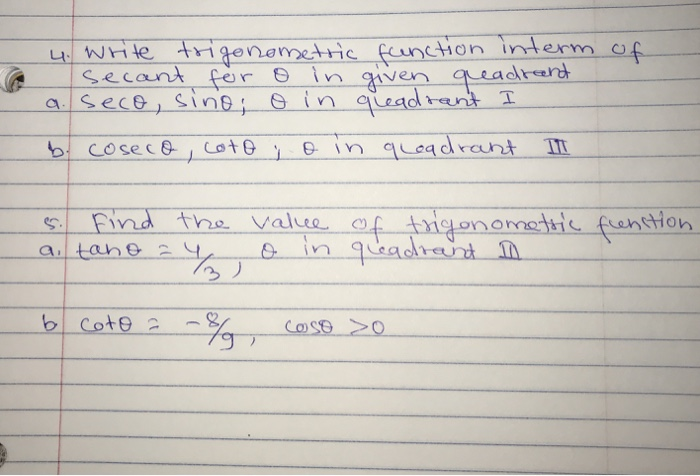 4. Write trigonometric function interm of
secant for θ in given quadrant
a. secθ, sinθ; θ in quadrant I
b. cosecθ, cotθ ; θ in quadrant III
5. Find the value of trigonometric function
a. tanθ = 4/3, θ in quadrant III
b cotθ = -8/9, cosθ >0